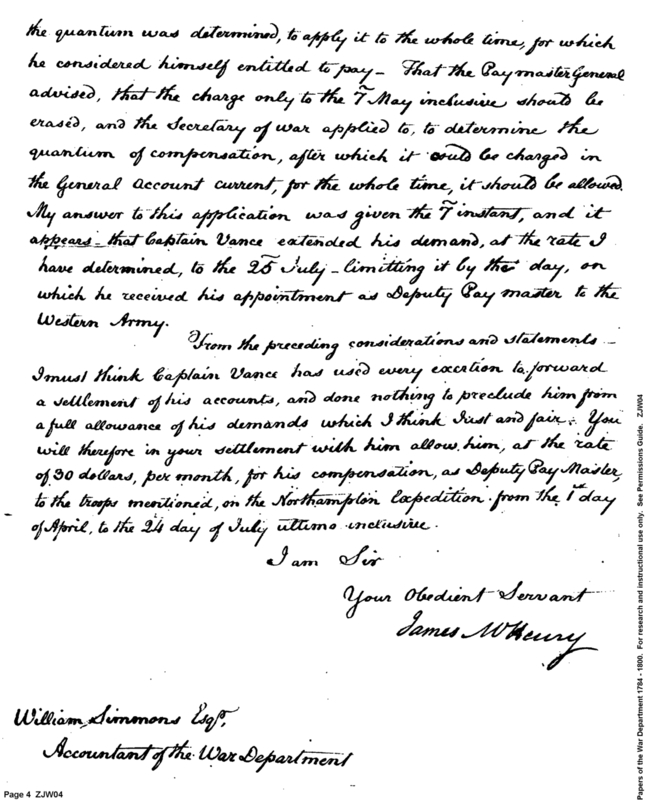 the quantum was determined, to apply it to the whole time, for which
he considered himself entitled to pay – That the Paymaster General
advised, that the charge only to the 7 May inclusive should be
erased, and the Secretary of war applied to, to determine the
quantum of compensation, after which it could be charged in
the General Account current, for the whole time, it should be allowed.
My answer to this application was given the 7 instant, and it
appears – that Captain Vance extended his demand, at the rate I
have determined, to the 25 July – limitting it by the day, on
which he received his appointment as Deputy Pay master to the
Western Army.
From the preceding considerations and statements –
I must think Captain Vance has used every exertion to forward
a settlement of his accounts, and done nothing to preclude him from
a full allowance of his demands which I think Just and fair. You
will therefore in your settlement with him allow him, at the rate
of 30 dollars, per month, for his compensation, as Deputy Pay Master,
to the troops mentioned, on the Northampton Expedition from the 1st day
of April, to the 24 day of July ultimo inclusive.
I am Sir
Your Obedient Servant
James McHenry
William Simmons Esqr.
Accountant of the War Department
Page 4 ZJW04
Papers of the War Department 1784 - 1800. For research and instructional use only. See Permissions Guide. ZJW04